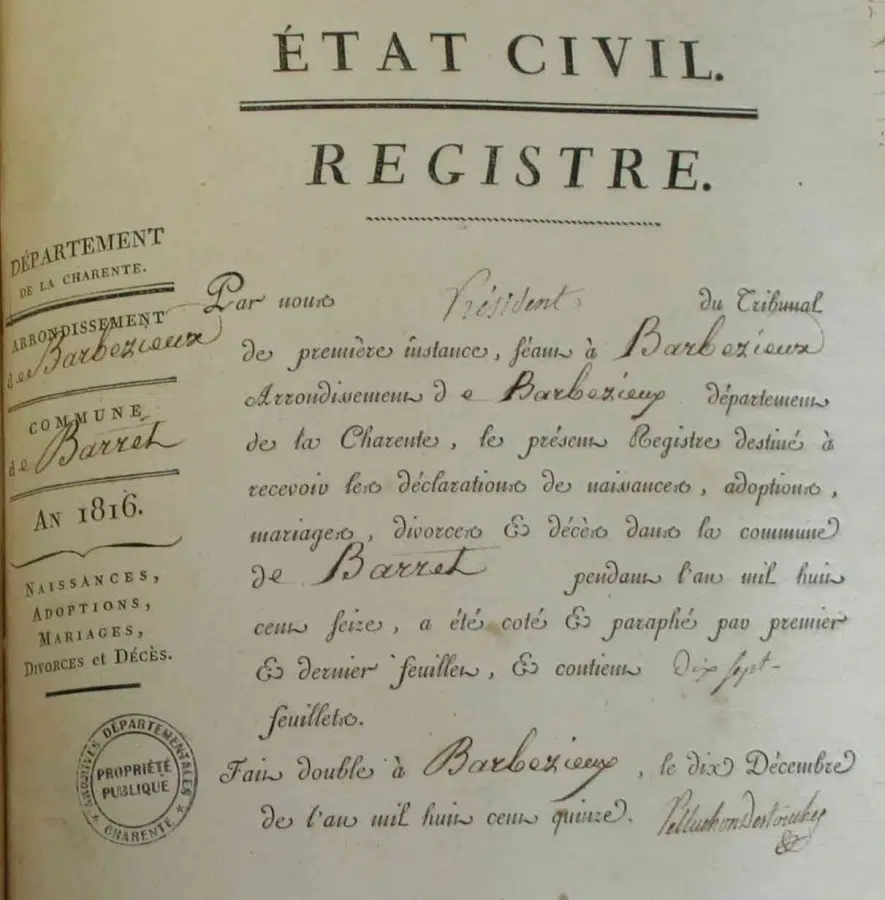 ÉTAT CIVIL.
REGISTRE.
DÉPARTEMENT
DE LA CHARENTE.
ARRONDISSEMENT
de Barbezieux
COMMUNE
de Barret
AN 1816.
NAISSANCES,
ADOPTIONS,
MARIAGES,
DIVORCES et DÉCÈS.
Par nous Président du Tribunal
de première instance, séant à Barbezieux
Arrondissement de Barbezieux département
de la Charente, le présent Registre destiné à
recevoir les déclarations de naissances, adoptions,
mariages, divorces & décès dans la commune
de Barret pendant l'an mil huit
cent seize, a été coté & paraphé par premier
& dernier feuillet, & contient dix sept
feuillets.
Fait double à Barbezieux, le dix Décembre
de l'an mil huit cent quinze. Pelluchon Destouches
ARCHIVES DÉPARTEMENTALES
PROPRIÉTÉ
PUBLIQUE
* CHARENTE *